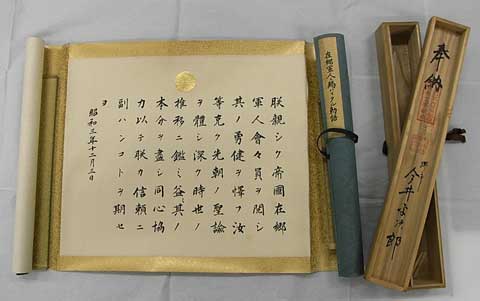 奉納
今井
郎
在郷軍人ニ賜ハリタル勅語
朕親シク帝國在郷
軍人會々員ヲ閲シ
其ノ勇健ヲ懌フ汝
等克ク先朝ノ聖諭
ヲ體シ深ク時世ノ
推移ニ鑑ミ益〻其ノ
本分ヲ盡シ同心協
力以テ朕カ信頼ニ
副ハンコトヲ期セ
ヨ
昭和三年十二月三日